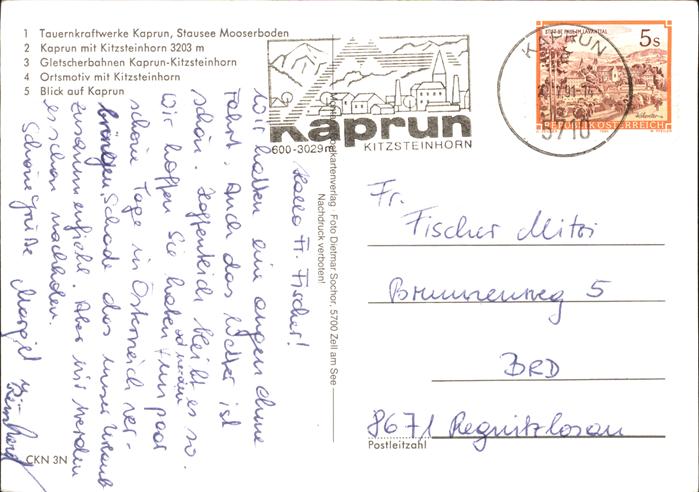 1 Tauernkraftwerke Kaprun, Stausee Mooserboden
2 Kaprun mit Kitzsteinhorn 3203 m
3 Gletscherbahnen Kaprun-Kitzsteinhorn
4 Ortsmotiv mit Kitzsteinhorn
5 Blick auf Kaprun
Kaprun
600-3029m KITZSTEINHORN
KAPRUN
5710
5 S
STIFT ST. PAUL IM LAVANTTAL
REPUBLIK ÖSTERREICH
Hallo Fr. Fischer!
Wir hatten eine angenehme
Fahrt. Auch das Wetter ist
schön. Hoffentlich bleibt es so.
Wir hoffen Sie haben ein paar
und werden
schöne Tage in Österreich ver-
bringen. Schade das unser Urlaub
zusammenfiehl. Aber wir werden
es schon nachholen.
Schöne Grüße Margit
Foto Dietmar Sochor, 5700 Zell am See
Nachdruck verboten!
Fr.
Fischer Mitzi
Brunnenweg 5
BRD
8671 Regnitzlosau
Postleitzahl
CKN 3N